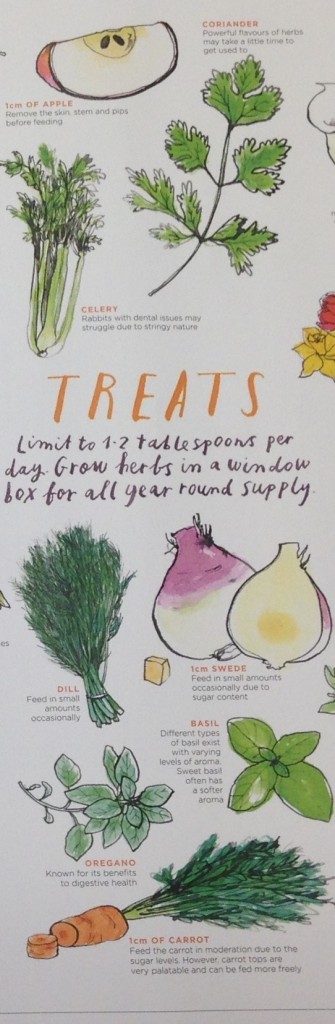 CORIANDER
Powerful flavours of herbs
may take a little time to
get used to
1cm OF APPLE
Remove the skin, stem and pips
before feeding
CELERY
Rabbits with dental issues may
struggle due to stringy nature
TREATS
Limit to 1-2 tablespoons per
day. Grow herbs in a window
box for all year round supply.
1cm SWEDE
Feed in small amounts
occasionally due to
sugar content
DILL
Feed in small
amounts
occasionally
BASIL
Different types
of basil exist
with varying
levels of aroma.
Sweet basil
often has
a softer
aroma
OREGANO
Known for its benefits
to digestive health
1cm OF CARROT
Feed the carrot in moderation due to the
sugar levels. However, carrot tops are
very palatable and can be fed more freely